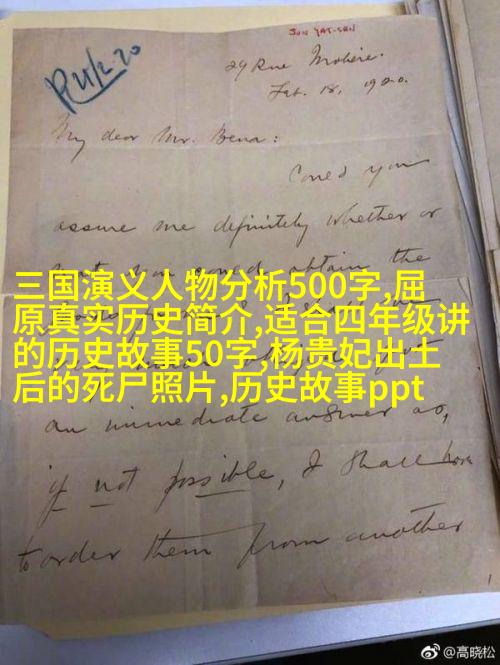 SUN YAT-SEN
R 21/2.20
29 Rue Molière.
Feb. 18, 1920.
My dear Mr. Bena:
Could you
assure me definitely whether or
obtain the
三国演义人物分析500字,屈
原真实历史简介,适合四年级讲
的历史故事50字,杨贵妃出土
后的死尸照片,历史故事ppt
an immediate answer as,
if not possible, I shall have
to order them from another
@高晓松